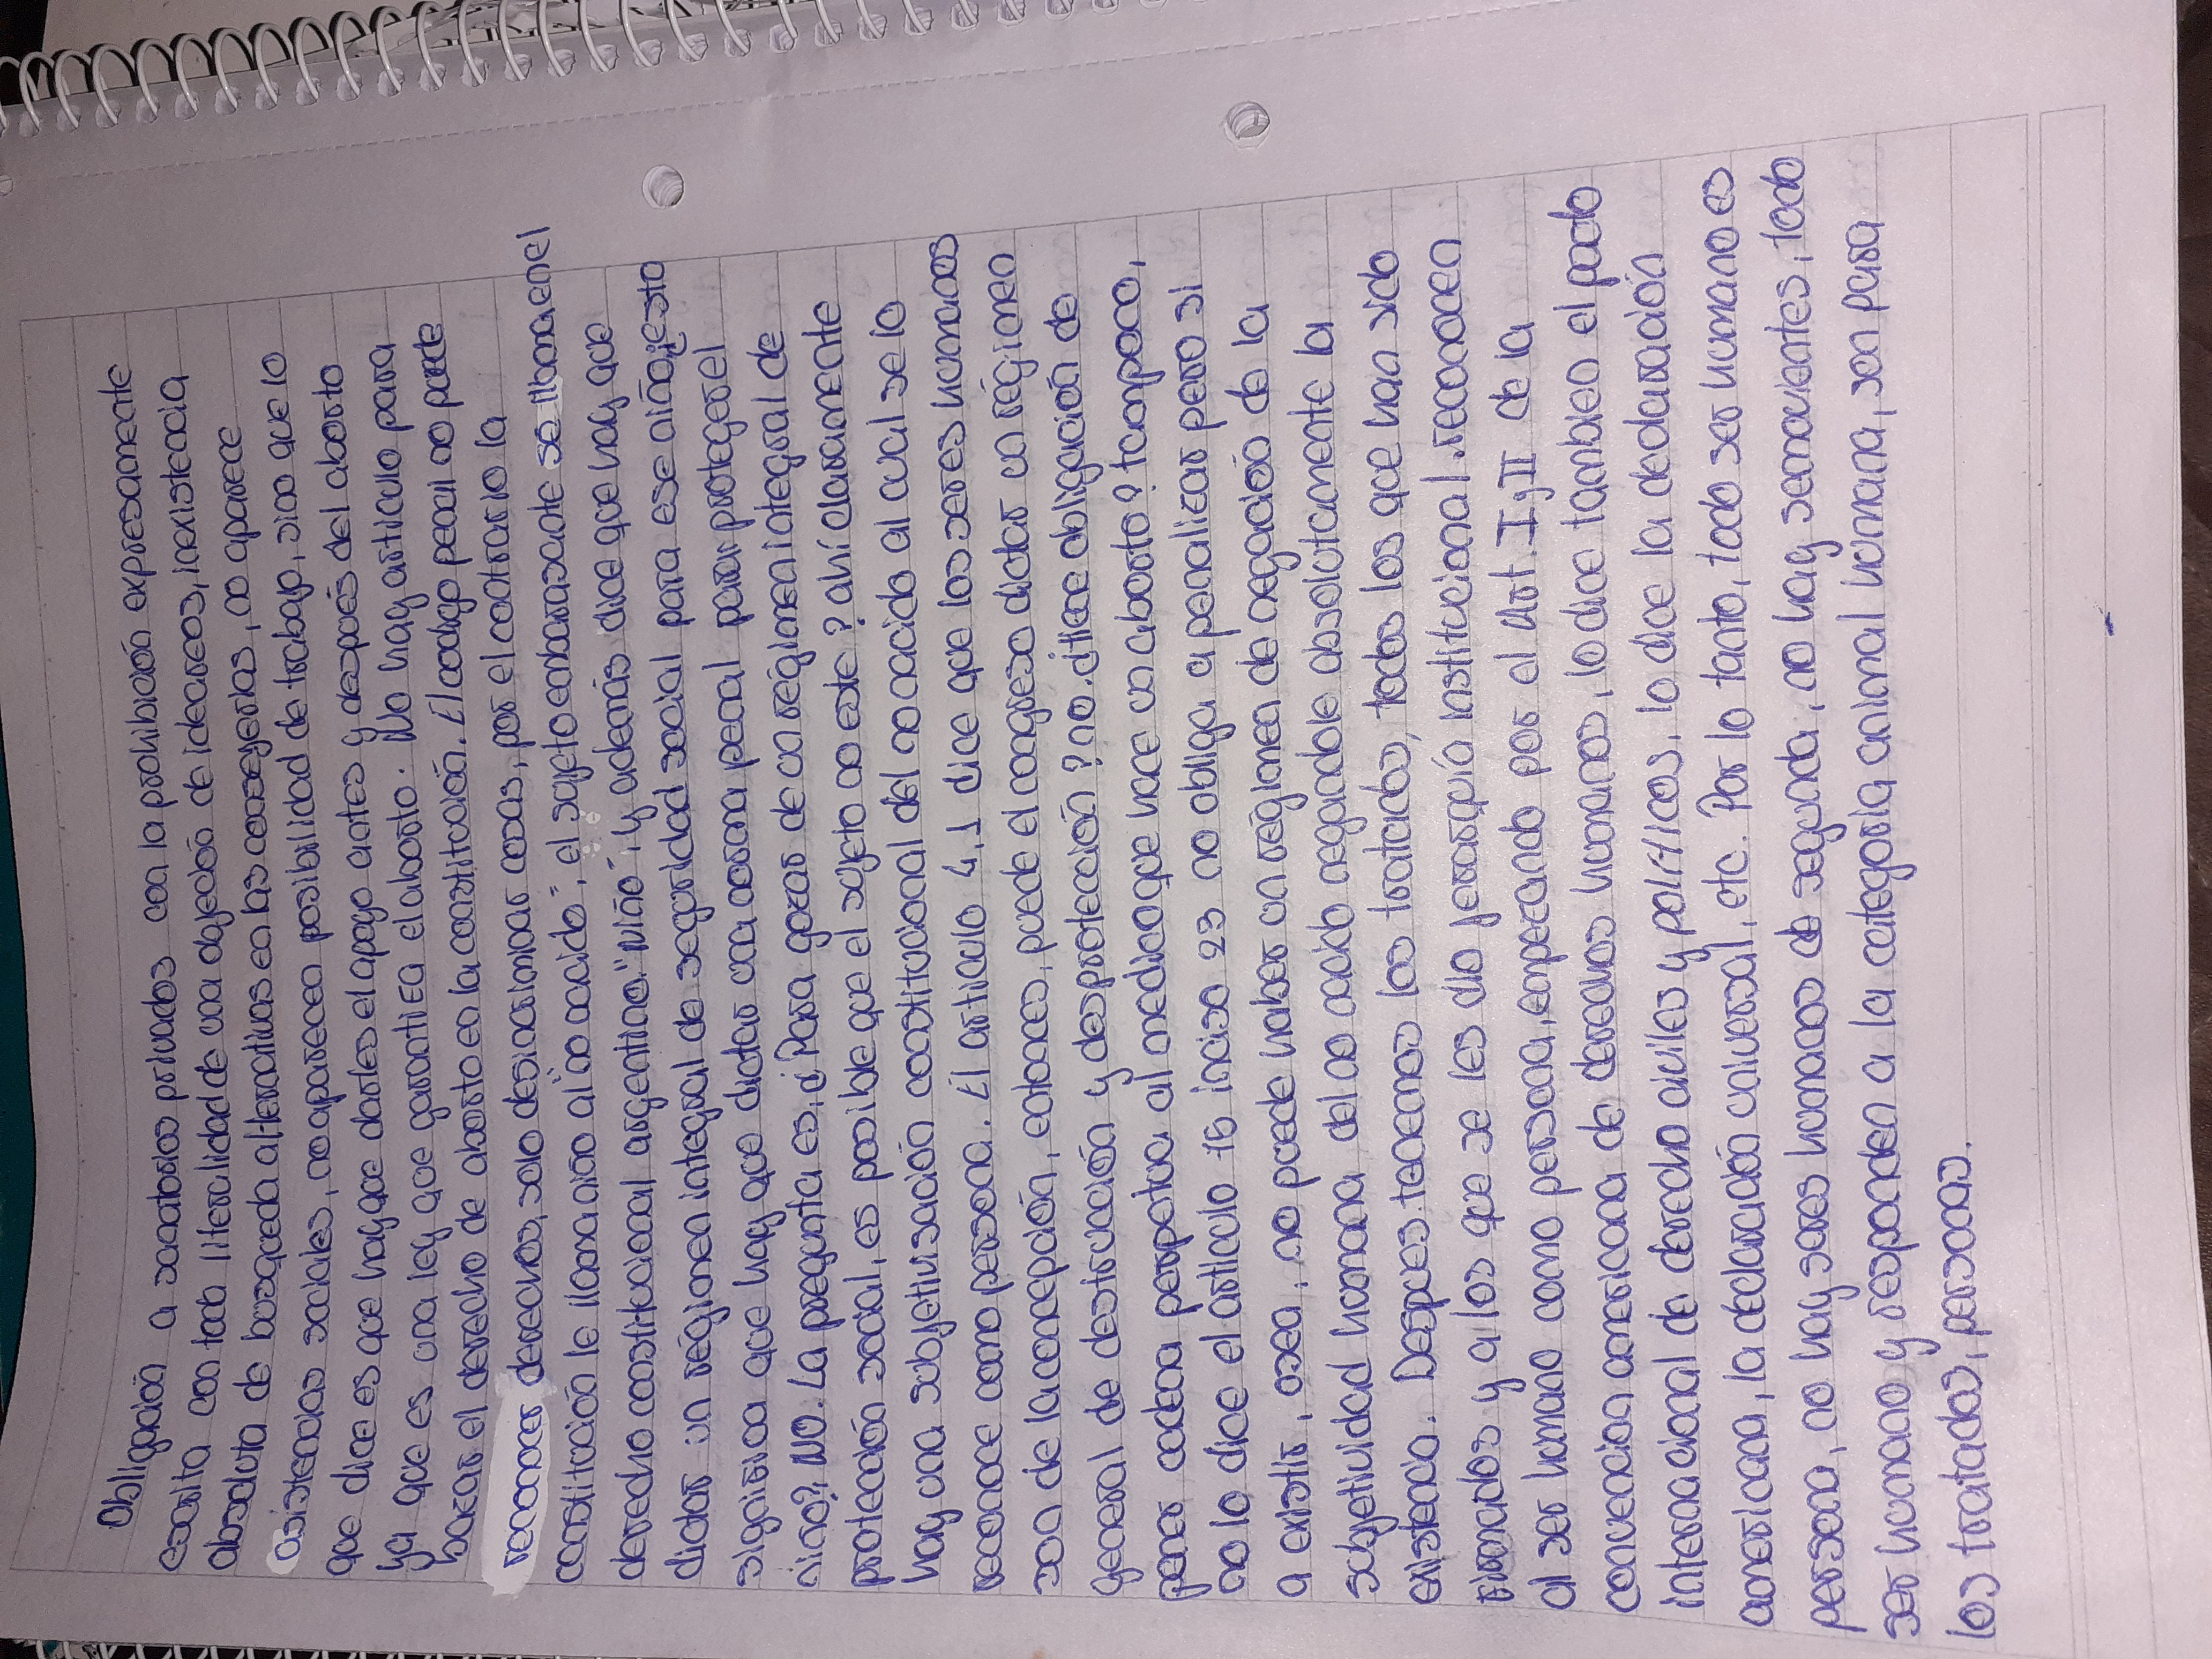 Obligación a sanatorios privados con la prohibición expresamente
escrita con toda literalidad de una objeción de ideareos, inexistencia
absoluta de busqueda alternativas en las consejerias, no aparece
asistencias sociales, no aparecen posibilidad de trabajo, sino que lo
que dice es que hay que darles el apego antes y después del aborto
ya que es una ley que garantiza el aborto. No hay articulo para
buscar el derecho de aborto en la constitución. El codigo penal no puede
reconocer derechos, solo desincriminar cosas, por el contrario la
constitución le llama niño al "no nacido", el sujeto embarazante se llama en el
derecho constitucional argentino: "niño", y además dice que hay que
dictar un régimen integral de seguridad social para ese niño, ¿esto
significa que hay que dictar una norma penal para proteger el
niño? NO. La pregunta es, ¿Para gozar de un régimen integral de
protección social, es posible que el sujeto no este? ahí claramente
hay una subjetivisación constitucional del no nacido al cual se lo
reconoce como persona. El artículo 4,1 dice que los seres humanos
son de la concepción, entonces, puede el congreso dictar un régimen
general de destrucción y desprotección? no. ¿Hace obligación de
poner cadena perpetua al medico que hace un aborto? tampoco,
no lo dice el artículo 75 inciso 23 no obliga a penalizar pero si
a existir, osea, no puede haber un régimen de negación de la
subjetividad humana del no nacido negandole absolutamente la
existencia. Despues tenemos los tratados, todos los que han sido
firmados y a los que se les dio jerarquía institucional reconocen
al ser humano como persona, empezando por el Art. I y II de la
convencion americana de derechos humanos, lo dice tambien el pacto
internacional de derecho civiles y politicos, lo dice la declaración
americana, la declaración universal, etc. Por lo tanto, todo ser humano es
persona, no hay seres humanos de segunda, no hay semovientes, todo
ser humano y responden a la categoria animal humana, son para
los tratados, personas.